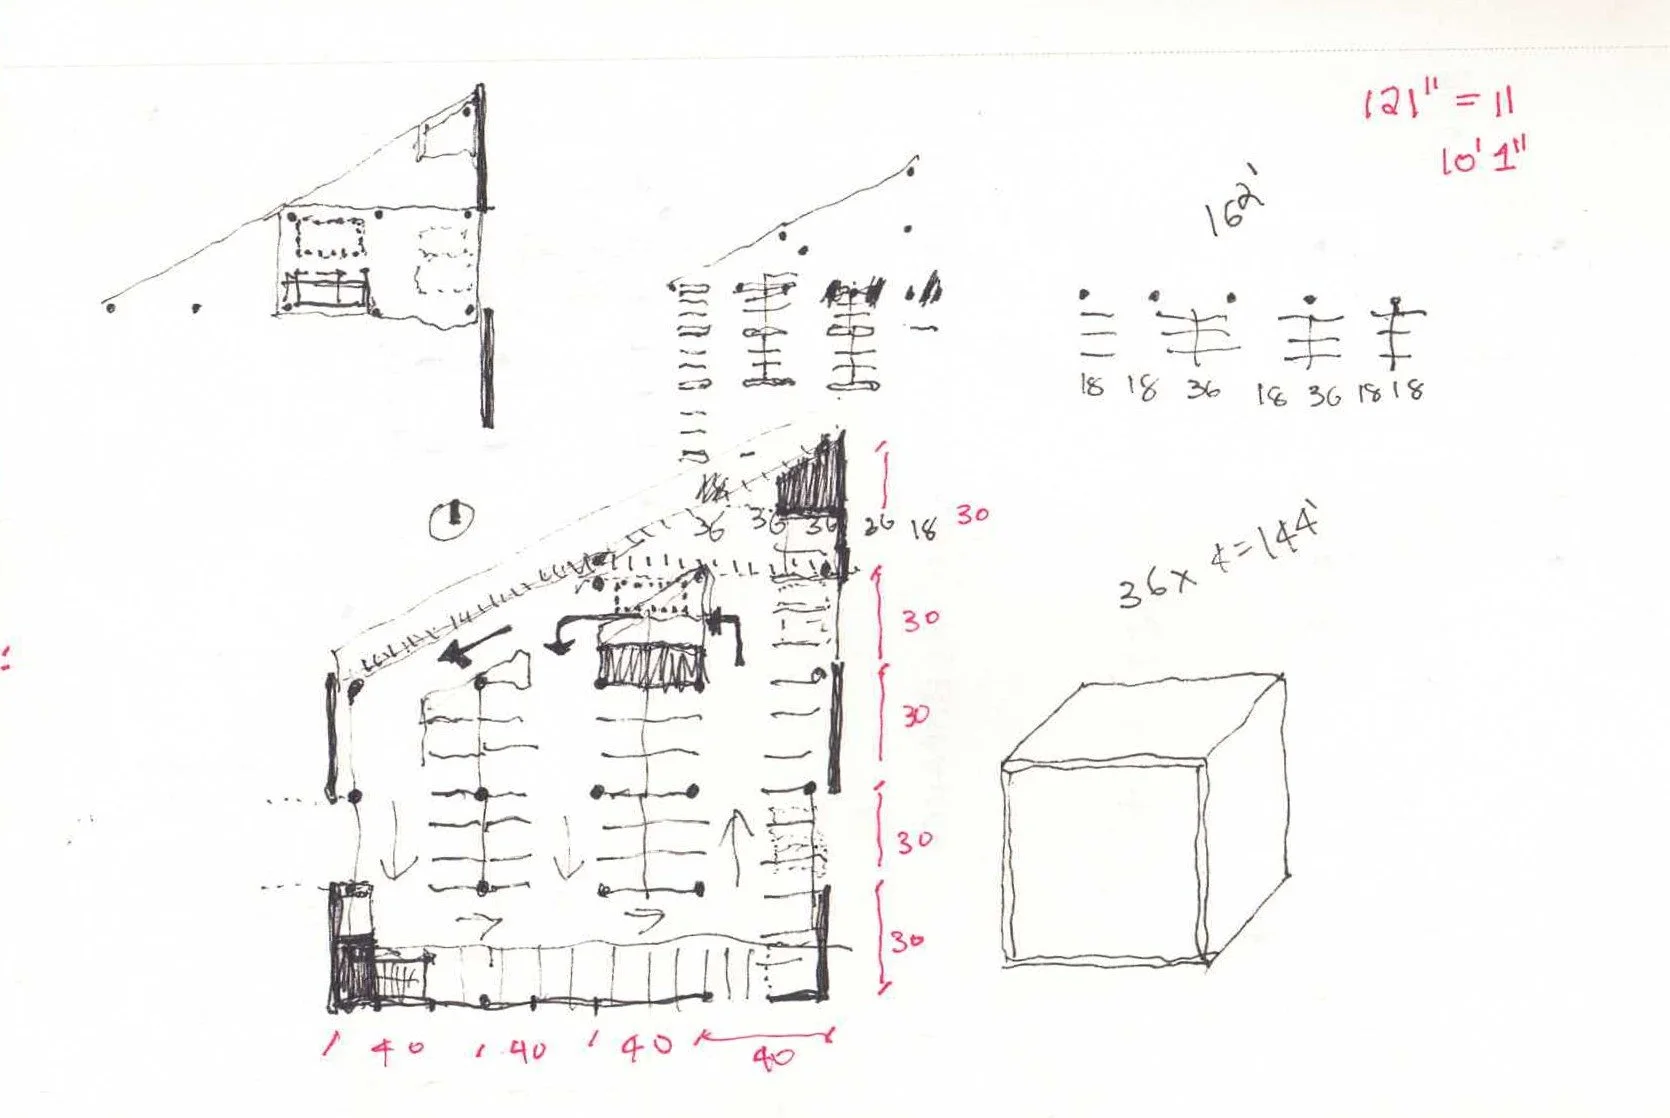 121" = 11
10' 1"
162'
18 18 36 18 36 18 18
36 36 36 36 18 30
36 x 4 = 144'
30
30
30
30
40 40 40 40